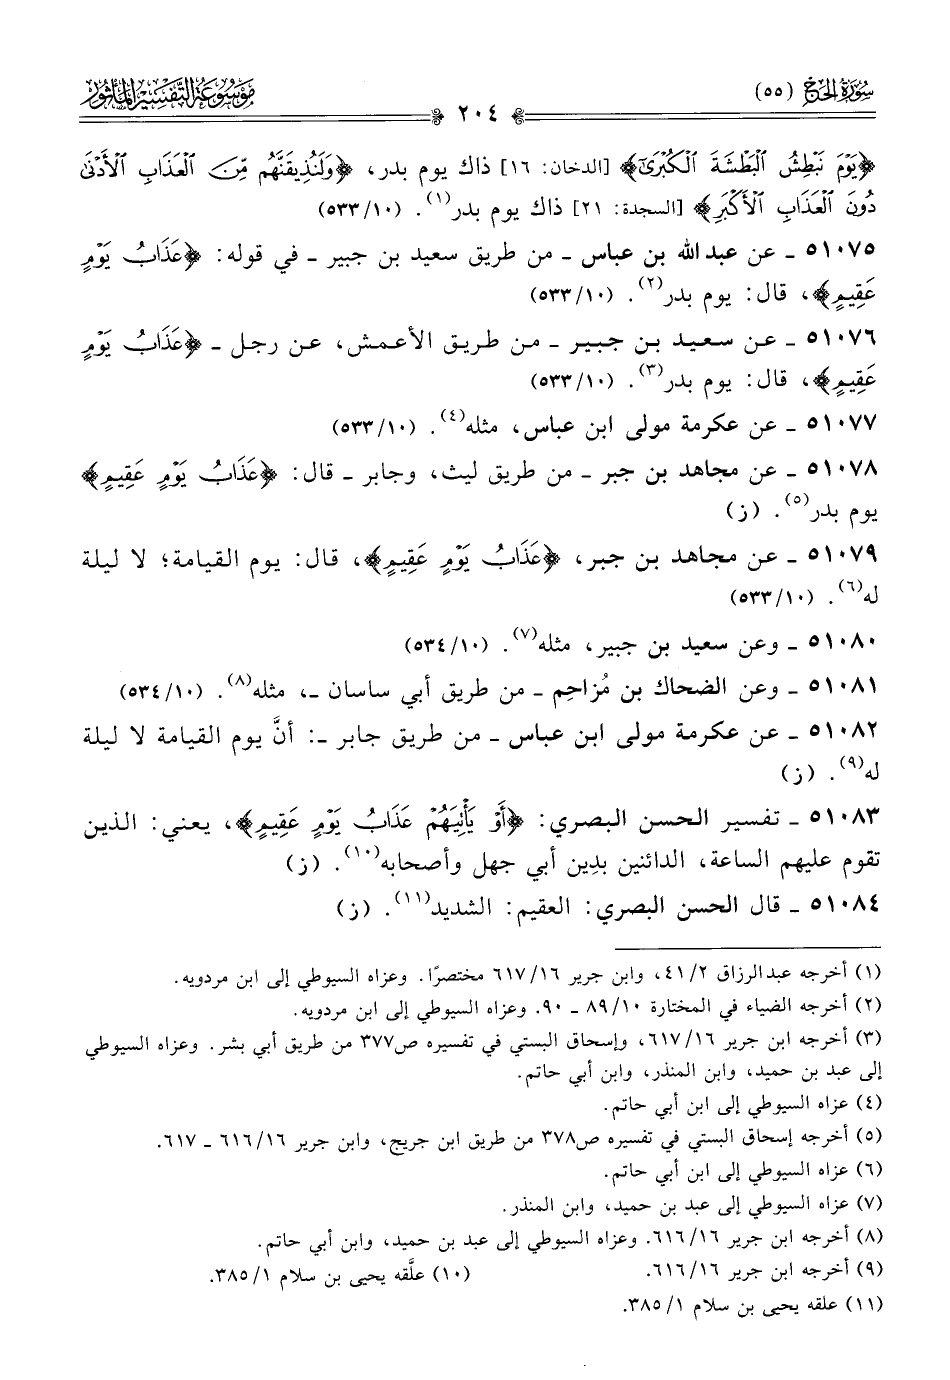 سُورَةُ الحَجّ (٥٥)
٢٠٤
مَوْسُوعَةُ التَّفْسِيرِ المَأْثُور
﴿يَوْمَ نَبْطِشُ ٱلْبَطْشَةَ ٱلْكُبْرَىٰٓ﴾ [الدخان: ١٦] ذاك يوم بدر، ﴿وَلَنُذِيقَنَّهُم مِّنَ ٱلْعَذَابِ ٱلْأَدْنَىٰ
دُونَ ٱلْعَذَابِ ٱلْأَكْبَرِ﴾ [السجدة: ٢١] ذاك يوم بدر(١). (٥٣٣/١٠)
٥١٠٧٥ ـ عن عبد الله بن عباس ـ من طريق سعيد بن جبير ـ في قوله: ﴿عَذَابُ يَوْمٍ
عَقِيمٍ﴾، قال: يوم بدر(٢). (٥٣٣/١٠)
٥١٠٧٦ ـ عن سعيد بن جبير ـ من طريق الأعمش، عن رجل ـ ﴿عَذَابُ يَوْمٍ
عَقِيمٍ﴾، قال: يوم بدر(٣). (٥٣٣/١٠)
٥١٠٧٧ ـ عن عكرمة مولى ابن عباس، مثله(٤). (٥٣٣/١٠)
٥١٠٧٨ ـ عن مجاهد بن جبر ـ من طريق ليث، وجابر ـ قال: ﴿عَذَابُ يَوْمٍ عَقِيمٍ﴾
يوم بدر(٥). (ز)
٥١٠٧٩ ـ عن مجاهد بن جبر، ﴿عَذَابُ يَوْمٍ عَقِيمٍ﴾، قال: يوم القيامة؛ لا ليلة
له(٦). (٥٣٣/١٠)
٥١٠٨٠ ـ وعن سعيد بن جبير، مثله(٧). (٥٣٤/١٠)
٥١٠٨١ ـ وعن الضحاك بن مُزاحِم ـ من طريق أبي ساسان ـ، مثله(٨). (٥٣٤/١٠)
٥١٠٨٢ ـ عن عكرمة مولى ابن عباس ـ من طريق جابر ـ: أنَّ يوم القيامة لا ليلة
له(٩). (ز)
٥١٠٨٣ ـ تفسير الحسن البصري: ﴿أَوْ يَأْتِيَهُمْ عَذَابُ يَوْمٍ عَقِيمٍ﴾، يعني: الذين
تقوم عليهم الساعة، الدائنين بدِين أبي جهل وأصحابه(١٠). (ز)
٥١٠٨٤ ـ قال الحسن البصري: العقيم: الشديد(١١). (ز)
(١) أخرجه عبد الرزاق ٤١/٢، وابن جرير ٦١٧/١٦ مختصرًا. وعزاه السيوطي إلى ابن مردويه.
(٢) أخرجه الضياء في المختارة ٨٩/١٠ ـ ٩٠. وعزاه السيوطي إلى ابن مردويه.
(٣) أخرجه ابن جرير ٦١٧/١٦، وإسحاق البستي في تفسيره ص٣٧٧ من طريق أبي بشر. وعزاه السيوطي
إلى عبد بن حميد، وابن المنذر، وابن أبي حاتم.
(٤) عزاه السيوطي إلى ابن أبي حاتم.
(٥) أخرجه إسحاق البستي في تفسيره ص٣٧٨ من طريق ابن جريج، وابن جرير ٦١٦/١٦ ـ ٦١٧.
(٦) عزاه السيوطي إلى ابن أبي حاتم.
(٧) عزاه السيوطي إلى عبد بن حميد، وابن المنذر.
(٨) أخرجه ابن جرير ٦١٦/١٦. وعزاه السيوطي إلى عبد بن حميد، وابن أبي حاتم.
(٩) أخرجه ابن جرير ٦١٦/١٦. (١٠) علَّقه يحيى بن سلام ٣٨٥/١.
(١١) علقه يحيى بن سلام ٣٨٥/١.